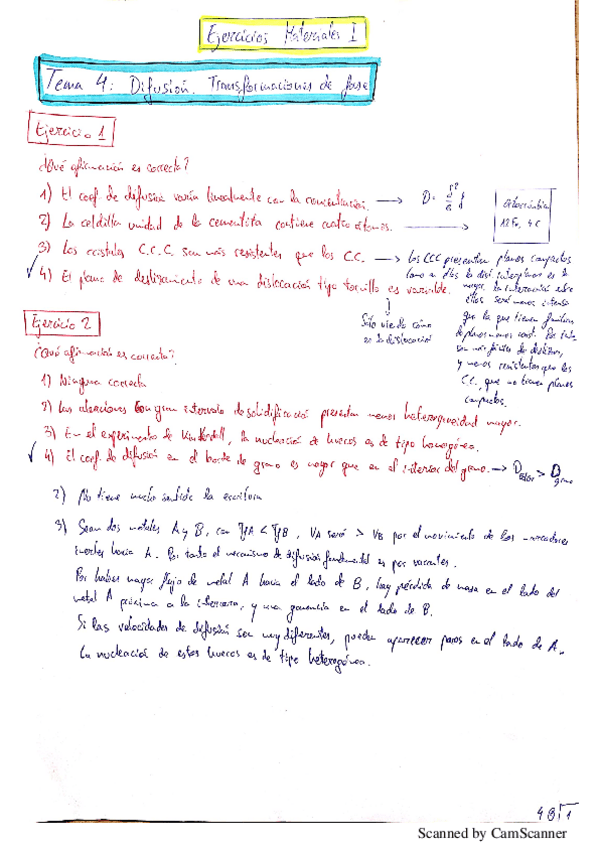 Ejercicios Materiales I
Tema 4: Difusión. Transformaciones de fase
Ejercicio 1
¿Qué afirmación es correcta?
1) El coef. de difusión varía linealmente con la concentración. → D =
2) La celdilla unidad de la cementita contiene cuatro átomos. →
12 Fe, 4 C
3) Los cristales C.C.C. son más resistentes que los C.C. → Los CCC presentan planos compactos
√ 4) El plano de deslizamiento de una dislocación tipo tornillo es variable.
mayor, la interacción entre
ellos será menos intensa
que la que tienen familias
de planos menos
Sólo vale de cómo
es la dislocación
son más fáciles de deslizar,
y menos resistentes que los
C.C. que no tienen planos
compactos.
Ejercicio 2
¿Qué afirmación es correcta?
1) Ninguna correcta
2) Las aleaciones con gran intervalo de solidificación presentan menos heterogeneidad mayor.
3) En el experimento de Kirkendall, la nucleación de huecos es de tipo homogéneo.
√ 4) El coef. de difusión en el borde de grano es mayor que en el interior del grano. → D > D grano
2) No tiene mucho sentido la escritura
3) Sean dos metales A y B, con TfA < TfB, VA será > VB por el movimiento de los marcadores
inertes hacia A. Por tanto el mecanismo de difusión fundamental es por vacantes.
Por haber mayor flujo de metal A hacia el lado de B, hay pérdida de masa en el lado del
metal A próxima a la intercara, y una ganancia en el lado de B.
Si las velocidades de difusión son muy diferentes, pueden aparecer poros en el lado de A.
La nucleación de estos huecos es de tipo heterogéneo.
Scanned by CamScanner